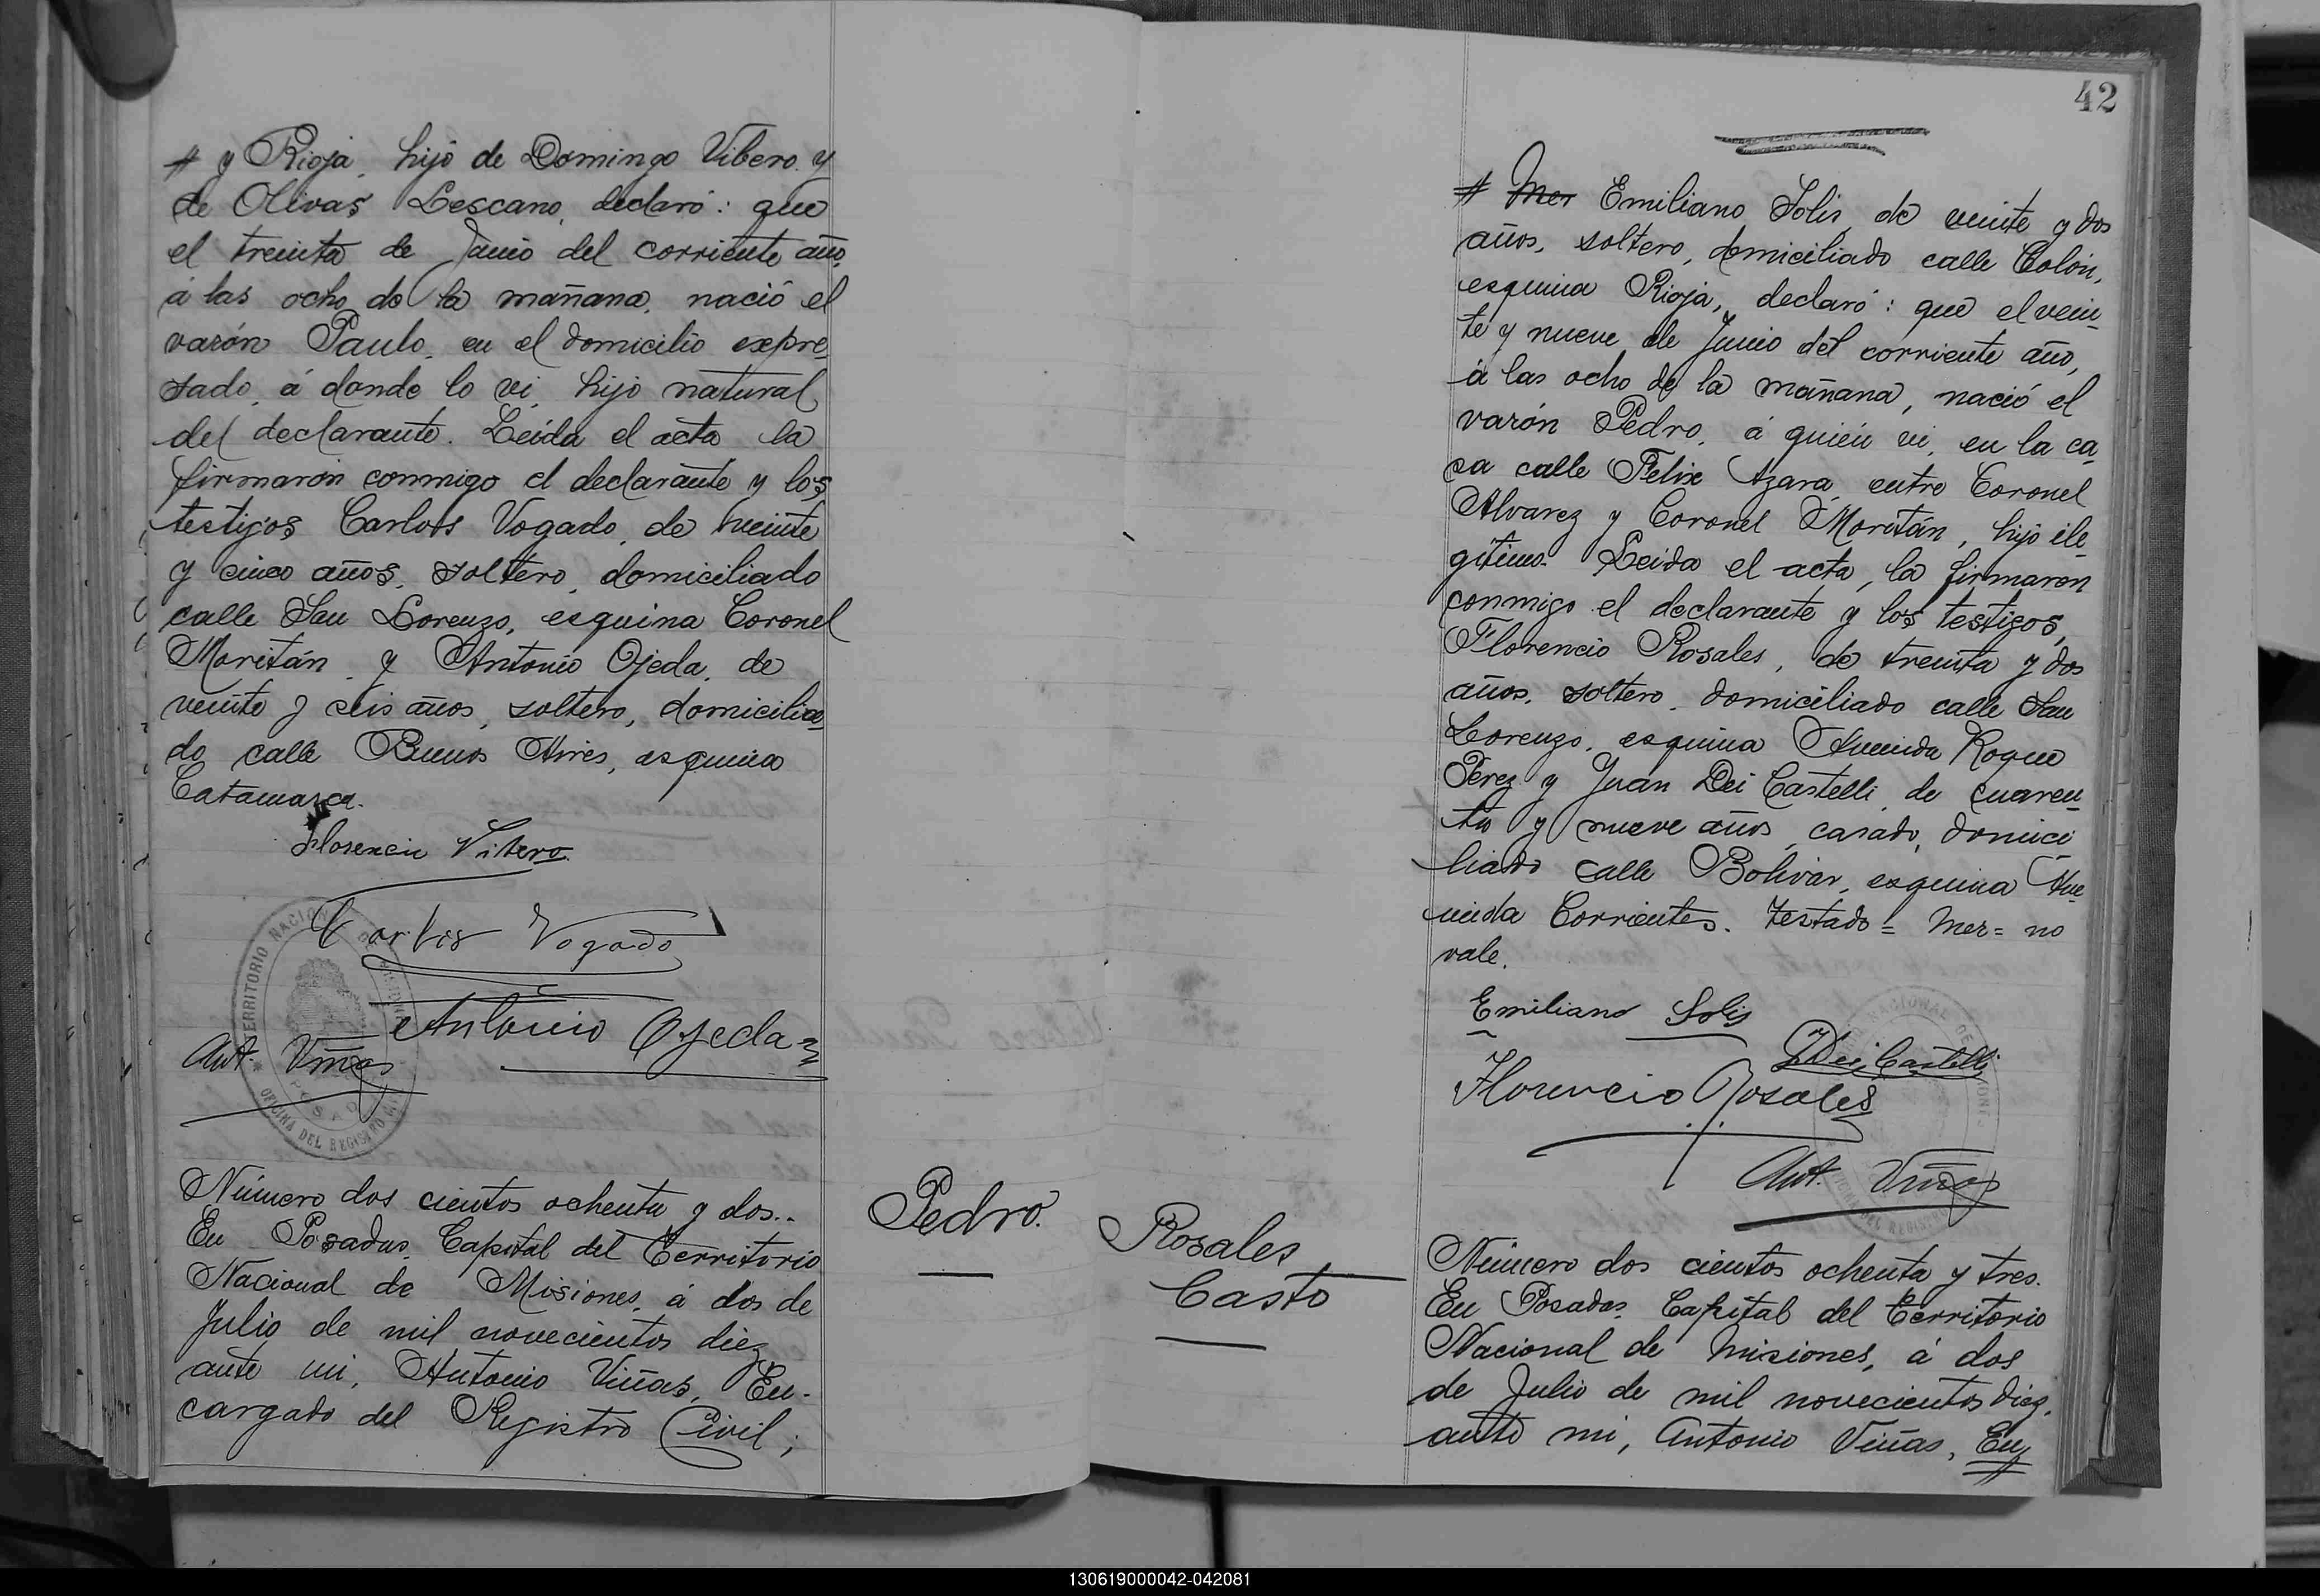 # y Rioja, hijo de Domingo Vibero y
de Olivas Lescano, declaró: que
el treinta de Junio del corriente año,
á las ocho de la mañana, nació el
varón Paulo, en el domicilio expre_
sado, á donde lo vi, hijo natural
del declarante. Leida el acta la
firmaron conmigo el declarante y los
testigos Carlos Vogado, de veinte
y cinco años, soltero, domiciliado
calle San Lorenzo, esquina Coronel
Moritán, y Antonio Ojeda, de
veinte y seis años, soltero, domicilia_
do calle Buenos Aires, esquina
Catamarca.
Florencio Vibero
Carlos Vogado
Antonio Ojeda
Ant. Viñas
TERRITORIO NACIONAL DE MISIONES
POSADAS
OFICINA DEL REGISTRO CIVIL
Número dos cientos ochenta y dos..
En Posadas, Capital del Territorio
Nacional de Misiones, á dos de
Julio de mil novecientos diez,
ante mi, Antonio Viñas, En-
cargado del Registro Civil;
Pedro.
42
# Mer Emiliano Solis, de veinte y dos
años, soltero, domiciliado calle Colón,
esquina Rioja, declaró: que el vein_
te y nueve de Junio del corriente año,
á las ocho de la mañana, nació el
varón Pedro, á quién vi, en la ca_
sa calle Felix Azara, entre Coronel
Alvarez y Coronel Moritán, hijo ile_
gitimo. Leida el acta, la firmaron
conmigo el declarante y los testigos,
Florencio Rosales, de treinta y dos
años, soltero, domiciliado calle San
Lorenzo, esquina Avenida Roque
Perez y Juan Dei Castelli, de cuaren_
ta y nueve años, casado, domici
liado calle Bolivar, esquina Ave_
nida Corrientes. Testado = Mer = no
vale.
Emiliano Solis
J Dei Castelli
Florencio Rosales
Ant. Viñas
Rosales
Casto
Número dos cientos ochenta y tres.
En Posadas, Capital del Territorio
Nacional de Misiones, á dos
de Julio de mil novecientos diez,
ante mi, Antonio Viñas, En#
130619000042-042081